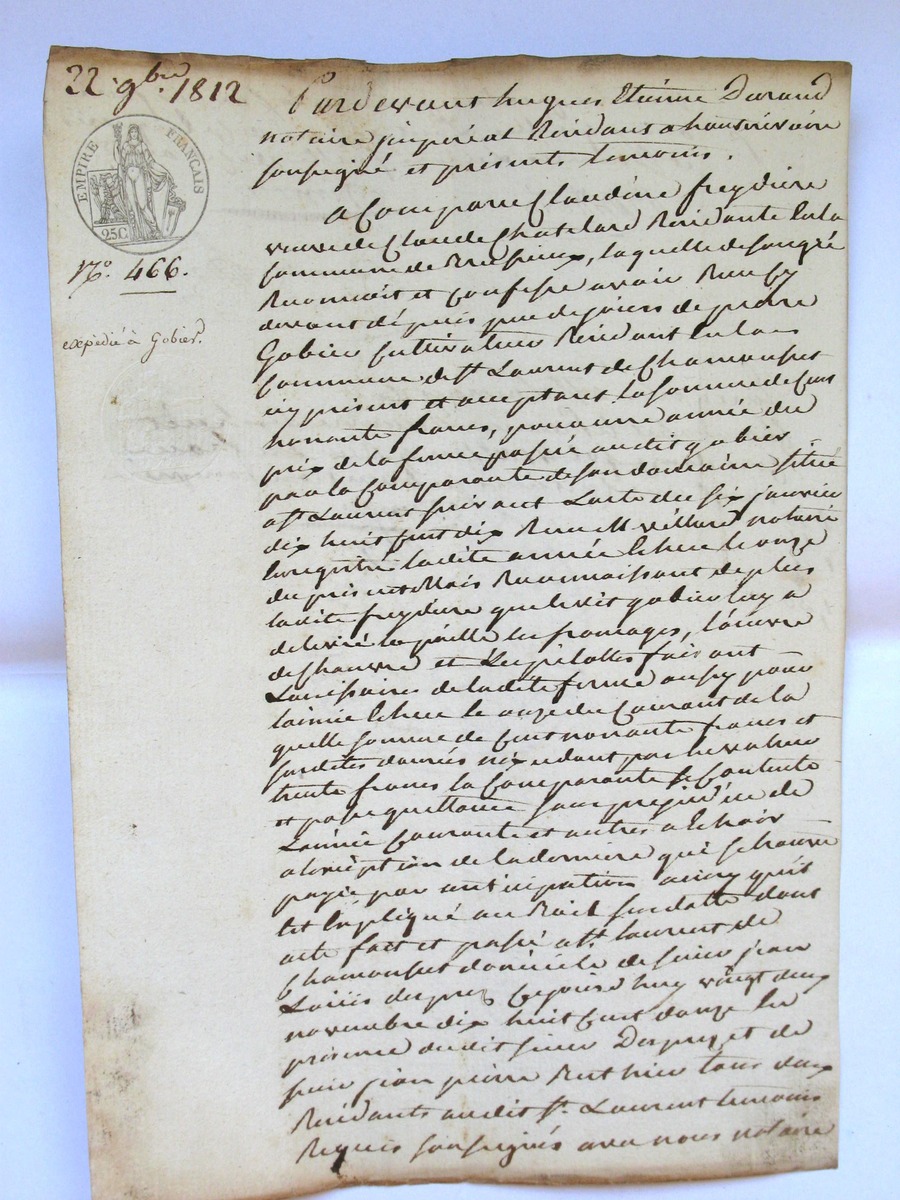 22. 9bre. 1812
EMPIRE FRANÇAIS
25C.
N.o 466.
expédié à Gobier.
Pardevant hugues Etienne Durand
notaire jmpérial Residant a hauterivoire
soussigné et présents temoins.
a Comparu Claudine freydiere
veuve de Claude Chatelard Residante en la
Commune de Brussieux, laquelle de son gré
Reconnoit et Confesse avoir Reçu cy
devant depuis peu de jours de pierre
Gobier Cultivateur Residant en la
Commune de St. Laurent de Chamousset
icy présent et acceptant, la Somme de Cent
nonante francs, pour une année du
prix de la ferme passée audit gobier
par la Comparante de son domaine situé
a St. Laurent suivant L'acte du six janvier
dix huit Cent dix Reçu M villard notaire
Enregistré ladite année Echue le onze
du présent Mois Reconnaissant de plus
ladite freydiere que ledit gobier luy a
délivré la paille les fromages, l'oeuvre
de Chanvre et Les pelottes faisant
Les issaires de ladite ferme aussy pour
lannée Echue le onze du Courant de la
quelle somme de Cent nonante francs et
susdites danrées n'excedant pas la valeur
trente francs la Comparante Se Contente
et passe quittance sans prejudice de
L'année Courante et autres a Echoir
a l'exception de la derniere qui se trouve
payée par anticipation ainsy qu'il
Est Expliqué au Bail susdatté dont
acte fait et passé a St. Laurent de
Chamousset domicile de sieur jean
Louis desprez Cejourd'huy vingt deux
novembre dix huit Cent douze En
présence dudit sieur Desprez et de
sieur jean pierre Berthier tous deux
Residants audit St. Laurent temoins
Requis soussignés avec nous notaire